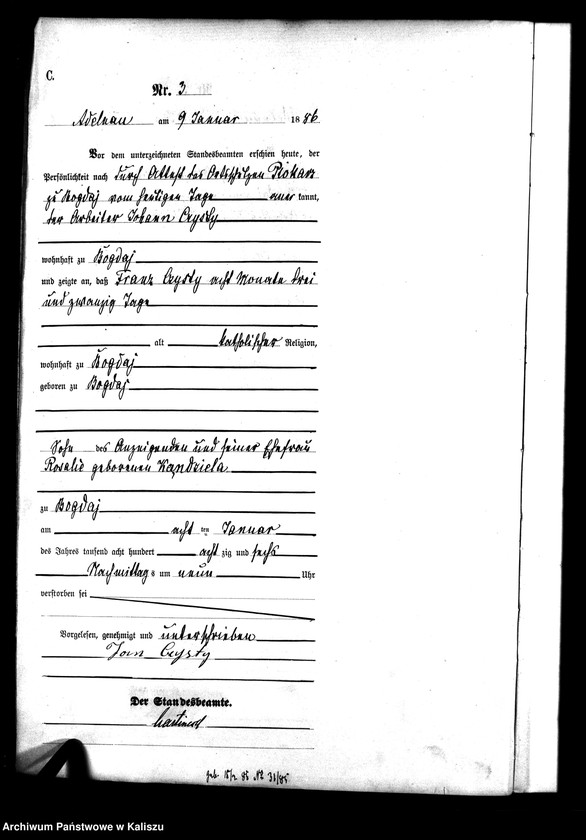 C.
Nr. 3
Adelnau am 9 Januar 1886
Vor dem unterzeichneten Standesbeamten erschien heute, der
Persönlichkeit nach durch Attest des Ortsschulzen
zu Bogdaj vom heutigen Tage aner kannt,
der Arbeiter Johann Czysty
wohnhaft zu Bogdaj
und zeigte an, daß Franz Czysty acht Monate drei
und zwanzig Tage
alt katholischer Religion,
wohnhaft zu Bogdaj
geboren zu Bogdaj
Sohn des Anzeigenden und seiner Ehefrau
Rosalie geborenen Kandziela
zu Bogdaj
am acht ten Januar
des Jahres tausend acht hundert acht zig und sechs
Nachmittags um neun Uhr
verstorben sei
Vorgelesen, genehmigt und unterschrieben
Jan Czysty
Der Standesbeamte.
geb. 85 No 31/85
Archiwum Państwowe w Kaliszu